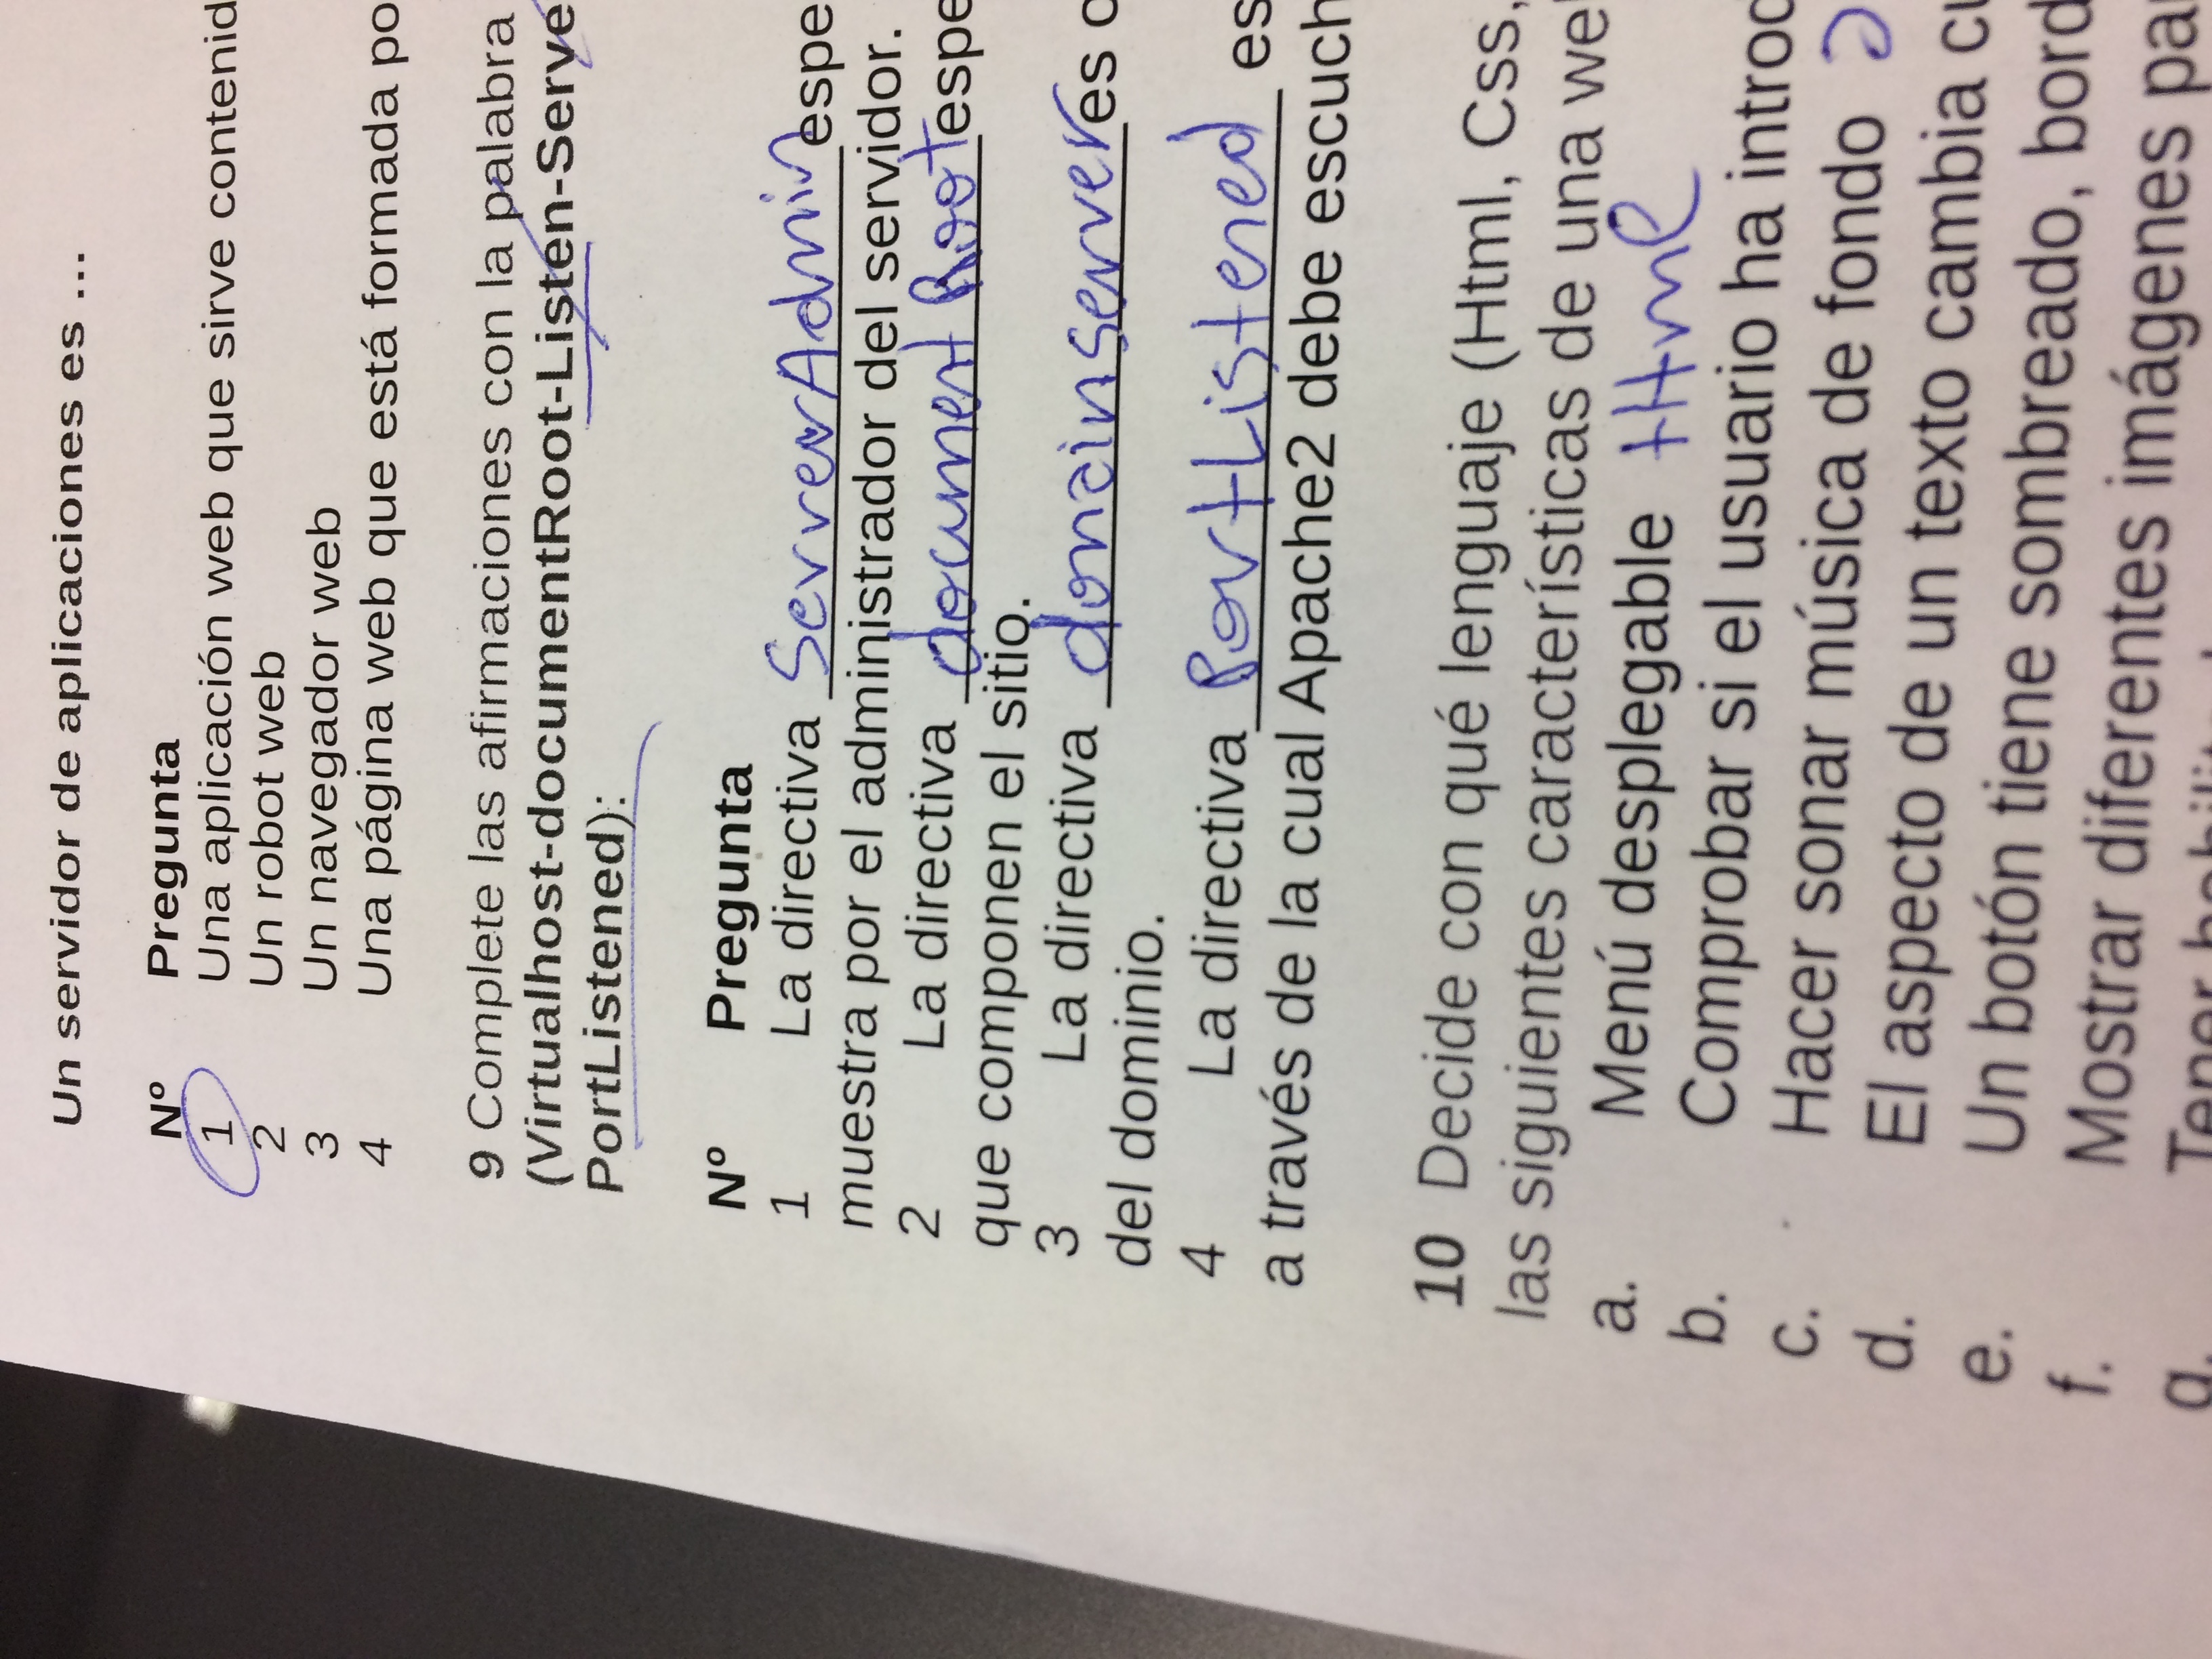 Un servidor de aplicaciones es ...
Nº Pregunta
1 Una aplicación web que sirve contenid
2 Un robot web
3 Un navegador web
4 Una página web que está formada po
9 Complete las afirmaciones con la palabra
(Virtualhost-documentRoot-Listen-Serve
PortListened):
Nº Pregunta
1 La directiva ServerAdmin espe
muestra por el administrador del servidor.
2 La directiva document Root espe
que componen el sitio.
3 La directiva domainserver es o
del dominio.
4 La directiva PortListened es
a través de la cual Apache2 debe escuch
10 Decide con qué lenguaje (Html, Css,
las siguientes características de una we
a. Menú desplegable Html
b. Comprobar si el usuario ha introd
c. Hacer sonar música de fondo
d. El aspecto de un texto cambia cu
e. Un botón tiene sombreado, bord
f. Mostrar diferentes imágenes pa
g. Tener